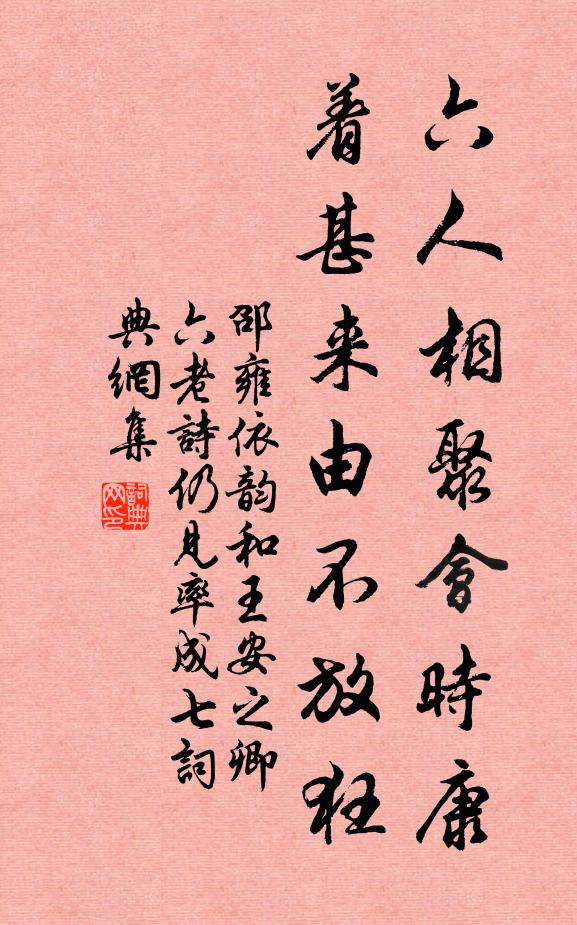 六人相聚會時康
着甚来由不放狂
邵雍依韵和王安之卿
六老詩仍見率成七詞
典網集
詞典网印